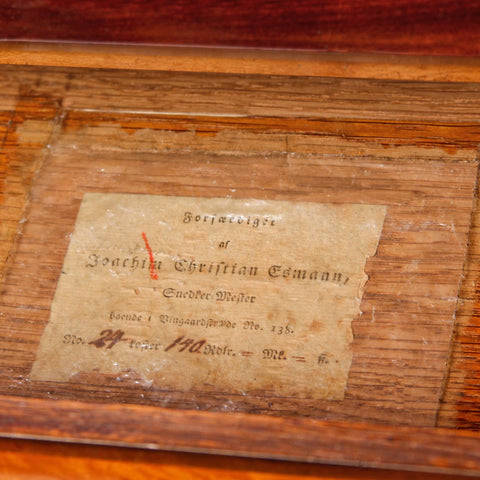 Forfærdiget
af
Joachim Christian Esmann,
Snedker-Mester
boende i Vingaardstræde No. 138.
No. 24 koster 140 Rdlr. = Mk. = ß.